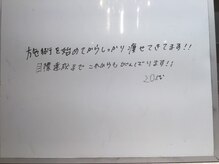 施術を始めてからしっかり痩せてきてます!!
目標達成までこれからもがんばります!!
20代